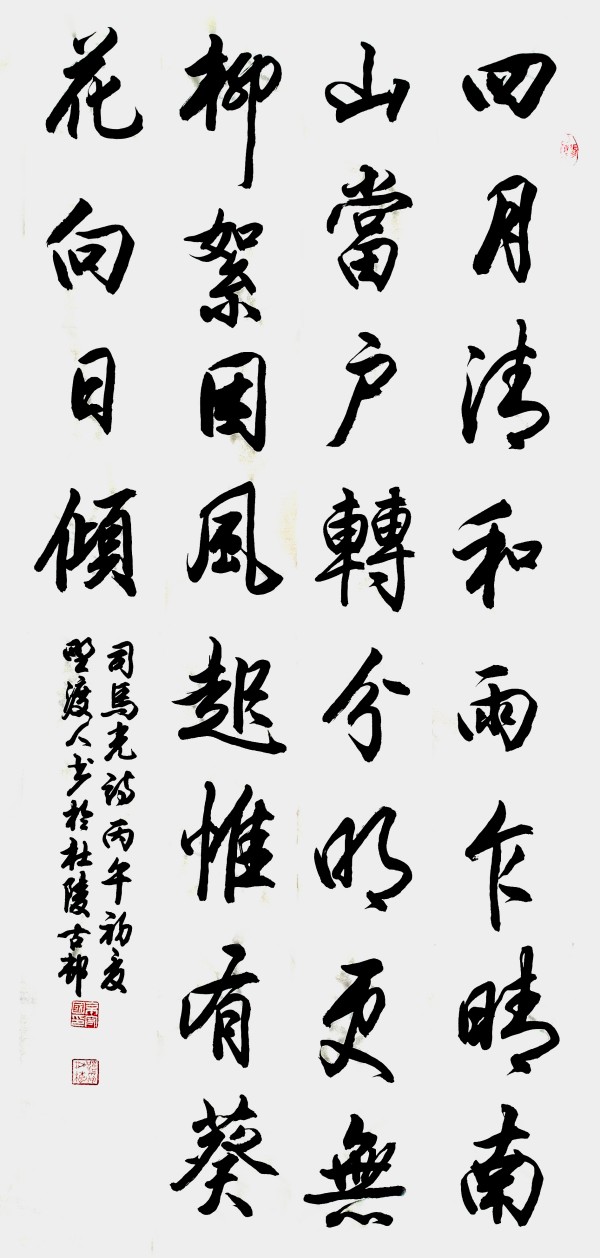 四月清和雨乍晴南
山當户轉分明更無
柳絮因風起惟有葵
花向日傾
司馬光詩丙午初夏
野渡人书於杜陵古都